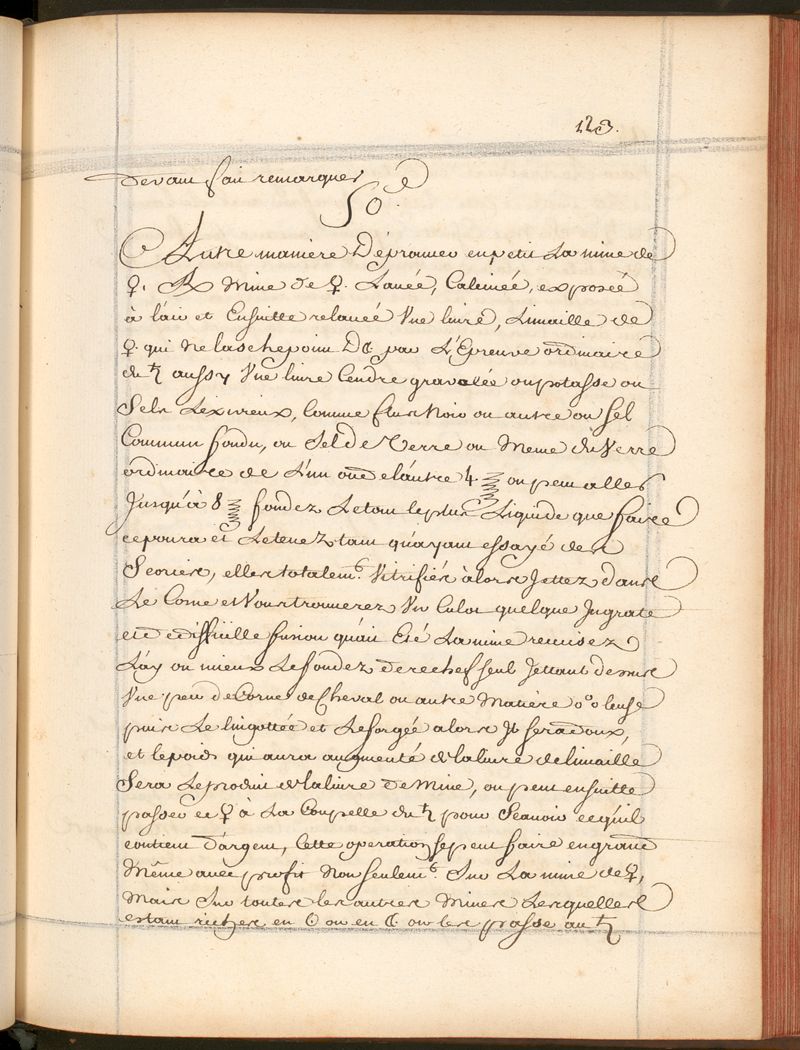 123.
devant fait remarquer
50.e
Autre maniere D'éprouver en petit La mine de
♀. ℞ Mine de ♀. Lauée, Calcinée, exposée
à l'air et Ensuitte relauée Vne liure, Limaille de
♀. qui ne la sche point D☾ par L'Epreuve ordinaire
du ♄ aussy Vne liure Cendre gravelée ou potasse ou
Sels Lexivieux, Comme flux Noir ou autre ou sel
Commun fondu, ou Sel de Verre ou Meme du Verre
ordinaire de L'un ou de l'autre 4. on peut aller
Jusqu'à 8 fondez Le tout le plus Liquide que faire
ce poura et Le tenez tant qu'ayant essayé des
Scories, elles totalemt. Vitrifiés alors Jettez dans
Le Cone et Vous trouverez Vn Culot quelque Ingrate
et de difficille fusion qu'ait Eté La mine
L'ay ou mieux Le fondez derechef seul Jettant dessus
Vne peu de Corne de Cheval ou autre Matiere oºo leuse
puis Le lingottée et Le forgée alors Il sera doux,
et le poids qui aura augmenté de la liure de limaille
Sera Le produit de la liure De Mine, on peut ensuitte
passer ce ♀ à La Coupelle du ♄ pour Scauoir ce qu'il
contient d'argent, Cette operation se peut faire en grand
Même avec profit Non seulemt. Sur La mine de ♀,
Mais Sur toutes les autres Mines Lesquelles
estant riches en ☉ ou en ☾ on les passe au ♄